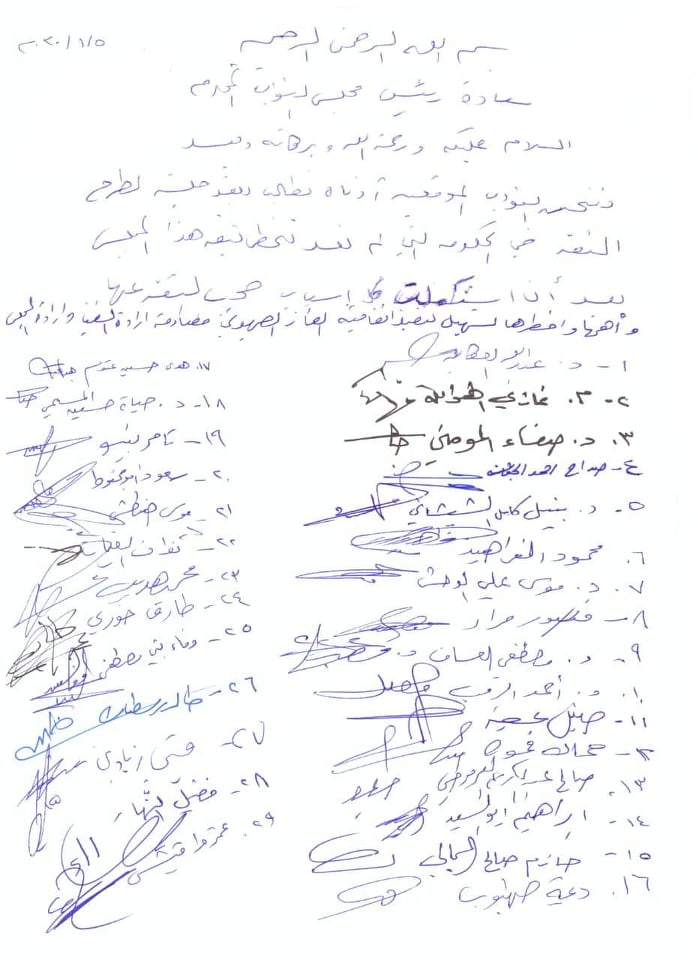 ٢٠٢٠/١/٥
بسم الله الرحمن الرحيم
سعادة رئيس مجلس النواب المحترم
السلام عليكم ورحمة الله وبركاته وبعد
فنحن النواب الموقعين أدناه نطالب بعقد جلسة لطرح
الثقة في الحكومة التي لم تعد تحظى بثقة هذا المجلس
بعد أن استكملت كل اسباب حجب الثقة عنها
وأهمها واخطرها تسهيل تنفيذ اتفاقية الغاز الصهيوني مصادمة ارادة الشعب وارادة المجلس
١- د. عبدالله العكايلة
٢- م. غازي الهواملة
٣. د. صفاء المومني
٤- صداح احمد الحباشنة
٥- د. نبيل كامل الشيشاني
٦. محمود الفراهيد
٧. د. موسى علي الوحش
٨- منصور مراد
٩. د. مصطفى العساف
١٠. د. أحمد الرقب
١١- خليل عطية
١٢-
١٣. صالح عبدالكريم العرموطي
١٤- ابراهيم ابو السيد
١٥- حازم صالح المجالي
١٦. ديمة طهبوب
١٧. هدى حسين
١٨- د. حياة حسين المسيمي
١٩- تامر بينو
٢٠- سعود ابو محفوظ
٢١- موسى هنطش
٢٢- نواف
٢٣- محمد هديب
٢٤- طارق خوري
٢٥- وفاء بني مصطفى
٢٦- خالد رمضان
٢٧- قصي
٢٨- فضيل
٢٩- عمر قراقيش